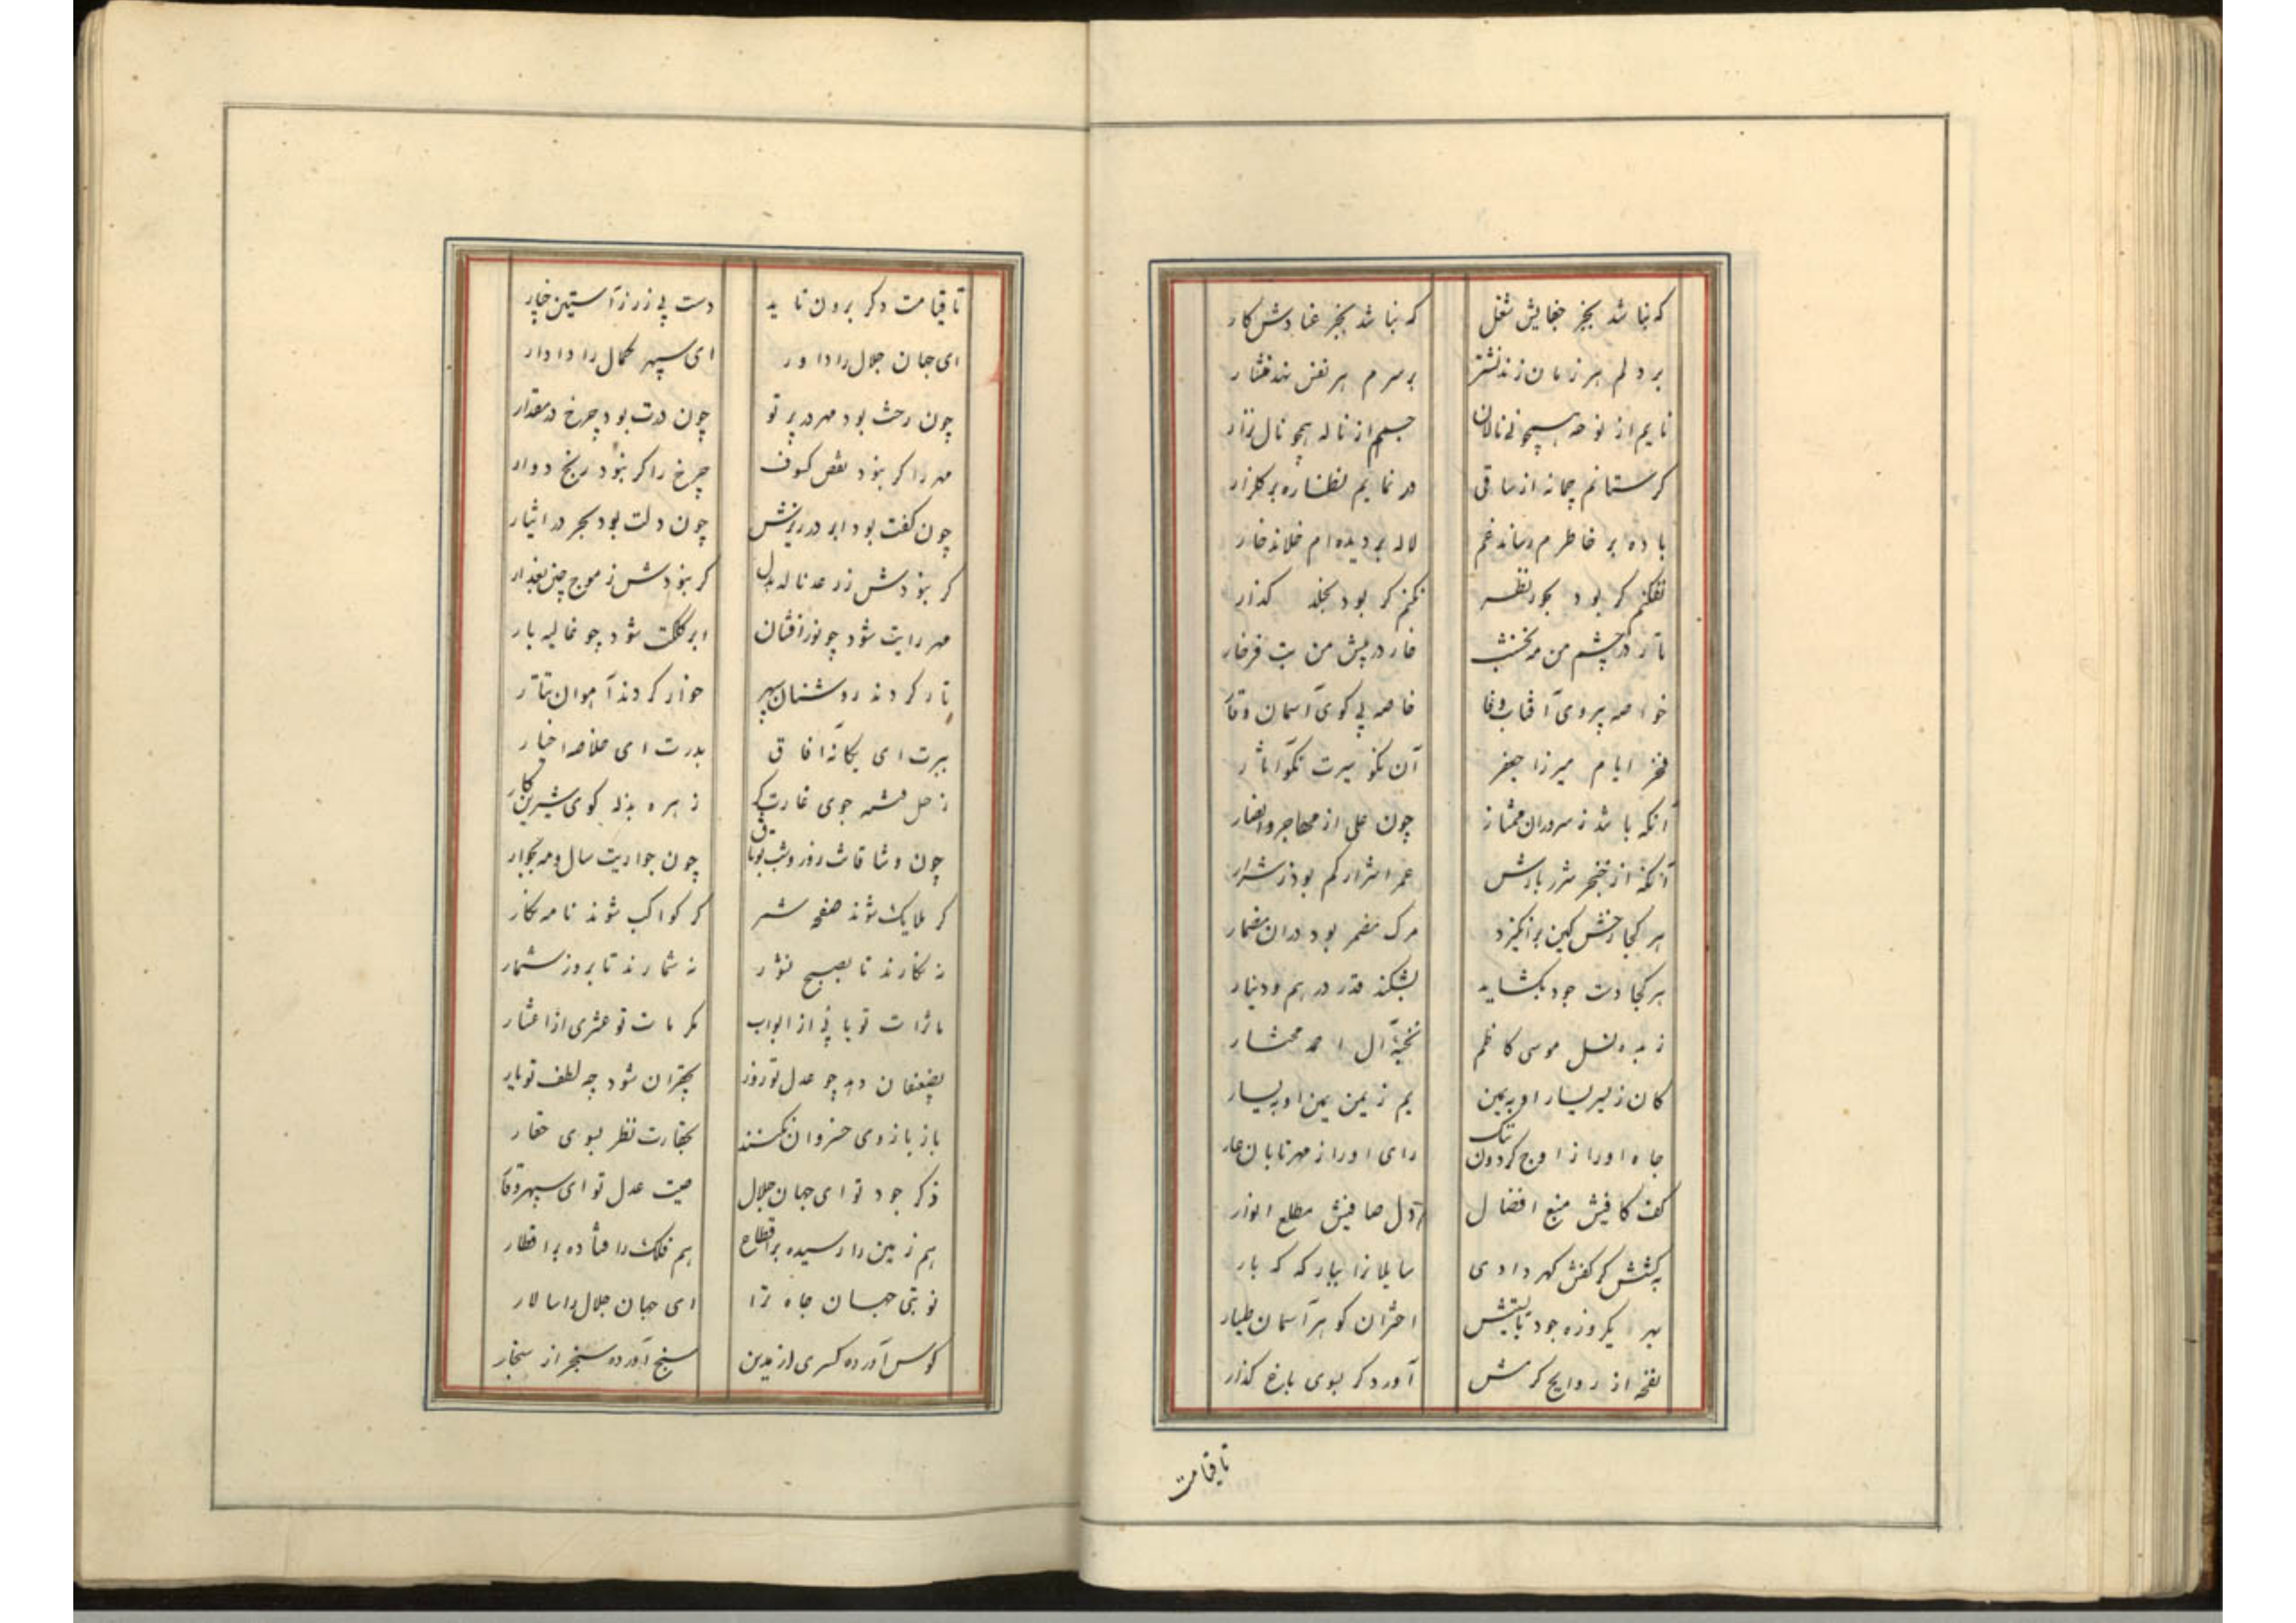 که نباشد بجز جفایش شغل
که نباشد بجز عنادش کار
بر دلم هر زمان زند نشتر
بر سرم هر نفس نهد افشار
نایم از نوحه همچو نی نالان
جسمم از ناله همچو نال نزار
کر ستانم چمانه از ساقی
در نمایم نظاره بر کلزار
باده بر خاطرم رساند غم
لاله بر دیده ام خلاند خار
نفکنم کر بود بحور نظر
نکنم کر بود بخلد کذار
تار در چشم من مه نخشب
خار در پیش من بت فرخار
خواصه پیروی آفتاب وفا
خاصه پی کوی آسمان وقار
فخر ایام میرزا جعفر
آن نکو سیرت نکو آثار
آنکه باشد ز سروران ممتاز
چون علی از مهاجر و انصار
آنکه از خنجر شرر بارش
عمر اشرار کم بود ز شرار
هر کجا رخش کین برانکیزد
مرک مضمر بود دران مضمار
هر کجا دست جود بکشاید
بشکند قدر درهم و دینار
زبده نسل موسی کاظم
نخبه آل احمد مختار
کان ز یسر یسار او بیمین
یم ز یمن یمین او بیسار
جاه او را ز اوج کردون ننک
رای او را ز مهر تابان عار
کف کافیش منبع افضال
دل صافیش مطلع انوار
به کشش کر کفش کهر دادی
سایلانرا ببار که که بار
بهر یکروزه جود نابستیش
اختران کوهر آسمان طیار
نفخه از روایح کرمش
آورد کر بسوی باغ کذار
تاقیامت
تا قیامت دکر برون ناید
دست بی زر ز آستین خار
ای جهان جلال را داور
ای سپهر کمال را دادار
چون رخت بود مهر در پرتو
چون درت بود چرخ در مقدار
مهر را کر نبود نقص کسوف
چرخ را کر نبود رنج دوار
چون کفت بود ابر در ریزش
چون دلت بود بحر در ایثار
کر نبودش ز رعد ناله بدل
کر نبودش ز موج چین بعذار
مهر رایت شود چو نورافشان
ابر کلکت شود چو غالیه بار
تار کردند روشنان سپهر
خوار کردند آهوان تتار
ببرت ای یکانه افاق
بدرت ای خلاصه اخیار
زحل فتنه جوی غارت کر
زهره بذله کوی شیرین کار
چون وشاقانت روز و شب بوثاق
چون جواریت سال و مه بجوار
کر ملایک شوند صفحه شمر
کر کواکب شوند نامه نکار
نه نکارند تا بصبح نشور
نه شمارند تا بروز شمار
ماثرات تو بابی از ابواب
مکرمات تو عشری از اعشار
بضعفان دهد چو عدل تو زور
بحقیران شود چه لطف تو یار
باز بازوی خسروان نکنند
بحقارت نظر بسوی حقار
ذکر جود تو ای جهان جلال
صیت عدل تو ای سپهر وقار
هم زمین را رسیده بر اقطاع
هم فلک را فتاده بر اقطار
نوبتی جهان جاه ترا
ای جهان جلال را سالار
کوس آورده کسری از مدین
سنج آورده سنجر از سنجار